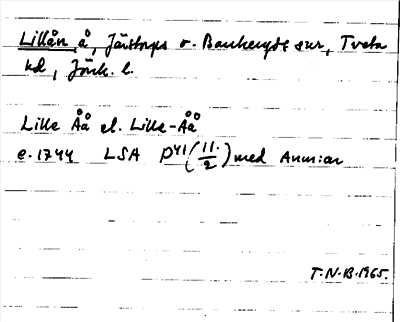 Lillån å, Järstorps o. Bankeryds snr, Tveta
hd, Jönk. l.
Lille Åå el. Lille-Åå
e. 1744 LSA P41 (11./2) med Annviar
T.N.B. 1965.